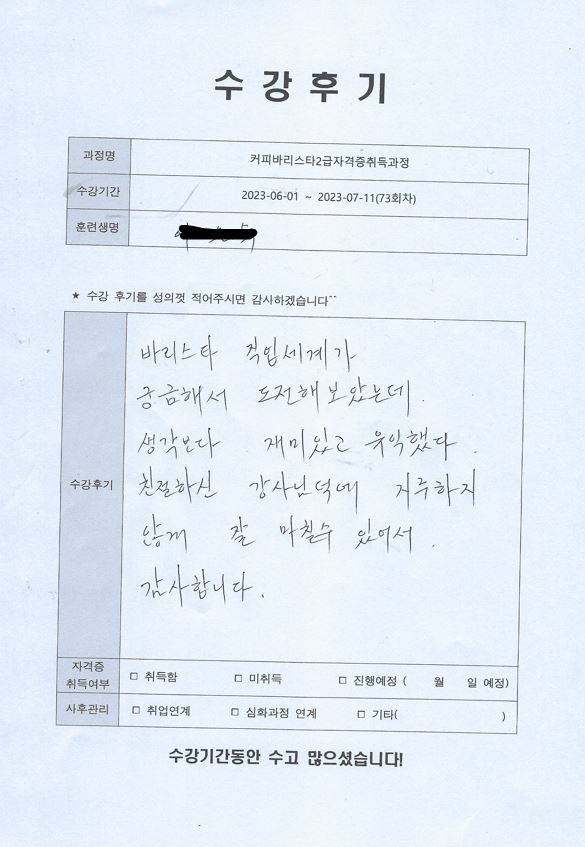 수강후기
과정명 커피바리스타2급자격증취득과정
수강기간 2023-06-01 ~ 2023-07-11(73회차)
훈련생명
★ 수강 후기를 성의껏 적어주시면 감사하겠습니다^^
수강후기
바리스타 직업세계가
궁금해서 도전해보았는데.
생각보다 재미있고 유익했다.
친절하신 강사님덕에 지루하지
않게 잘 마칠수 있어서.
감사합니다.
자격증 취득여부 □ 취득함 □ 미취득 □ 진행예정 ( 월 일 예정)
사후관리 □ 취업연계 □ 심화과정 연계 □ 기타( )
수강기간동안 수고 많으셨습니다!